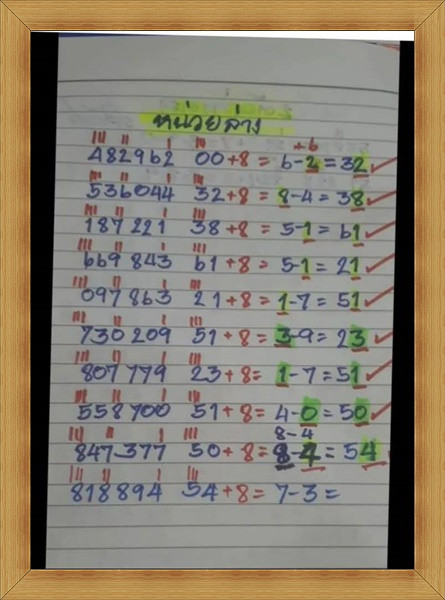 หน่วยล่าง
+6
482962 00+8 = 6-2 = 32
536044 32+8 = 8-4 = 38
187221 38+8 = 5-1 = 61
669843 61+8 = 5-1 = 21
097863 21+8 = 1-7 = 51
730209 51+8 = 3-9 = 23
807779 23+8 = 1-7 = 51
558700 51+8 = 4-0 = 50
8-4
847377 50+8 = 8-4 = 54
818894 54+8 = 7-3 =